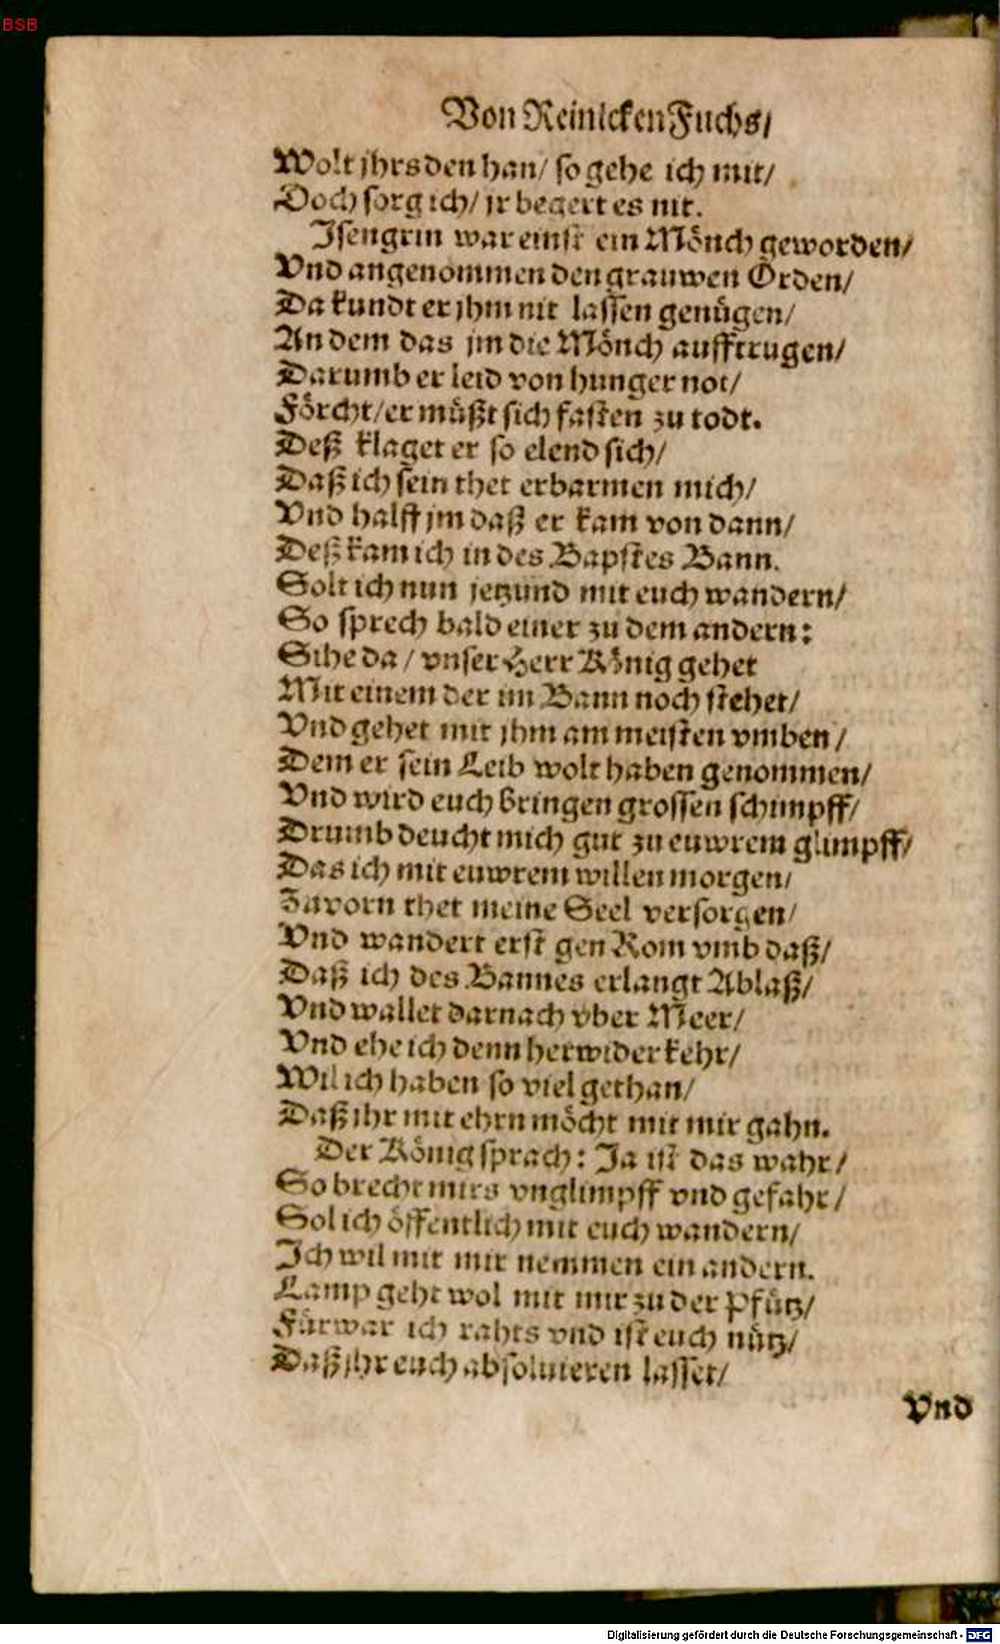 BSB
Von Reinicken Fuchs/
Wolt jhrs den han/ so gehe ich mit/
Doch sorg ich/ jr begert es nit.
Isengrin war einst ein Mönch geworden/
Vnd angenommen den grauwen Orden/
Da kundt er jhm nit lassen genügen/
An dem das jm die Mönch aufftrugen/
Darumb er leid von hunger not/
Förcht/ er müßt sich fasten zu todt.
Deß klaget er so elend sich/
Daß ich sein thet erbarmen mich/
Vnd halff jm daß er kam von dann/
Deß kam ich in des Bapstes Bann.
Solt ich nun jetzund mit euch wandern/
So sprech bald einer zu dem andern:
Sihe da / vnser Herr König gehet
Mit einem der im Bann noch stehet/
Vnd gehet mit jhm am meisten vmben /
Dem er sein Leib wolt haben genommen/
Vnd wird euch bringen grossen schimpff/
Drumb deucht mich gut zu euwrem glimpff/
Das ich mit euwrem willen morgen/
Zuvorn thet meine Seel versorgen/
Vnd wandert erst gen Rom vmb daß/
Daß ich des Bannes erlangt Ablaß/
Vnd wallet darnach vber Meer/
Vnd ehe ich denn herwider kehr/
Wil ich haben so viel gethan/
Daß ihr mit ehrn möcht mit mir gahn.
Der König sprach: Ja ist das wahr/
So brecht mirs vnglimpff vnd gefahr/
Sol ich öffentlich mit euch wandern/
Ich wil mit mir nemmen ein andern.
Lamp geht wol mit mir zu der Pfütz/
Fürwar ich rahts vnd ist euch nütz/
Daß jhr euch absoluieren lasset/
Vnd
Digitalisierung gefördert durch die Deutsche Forschungsgemeinschaft - DFG